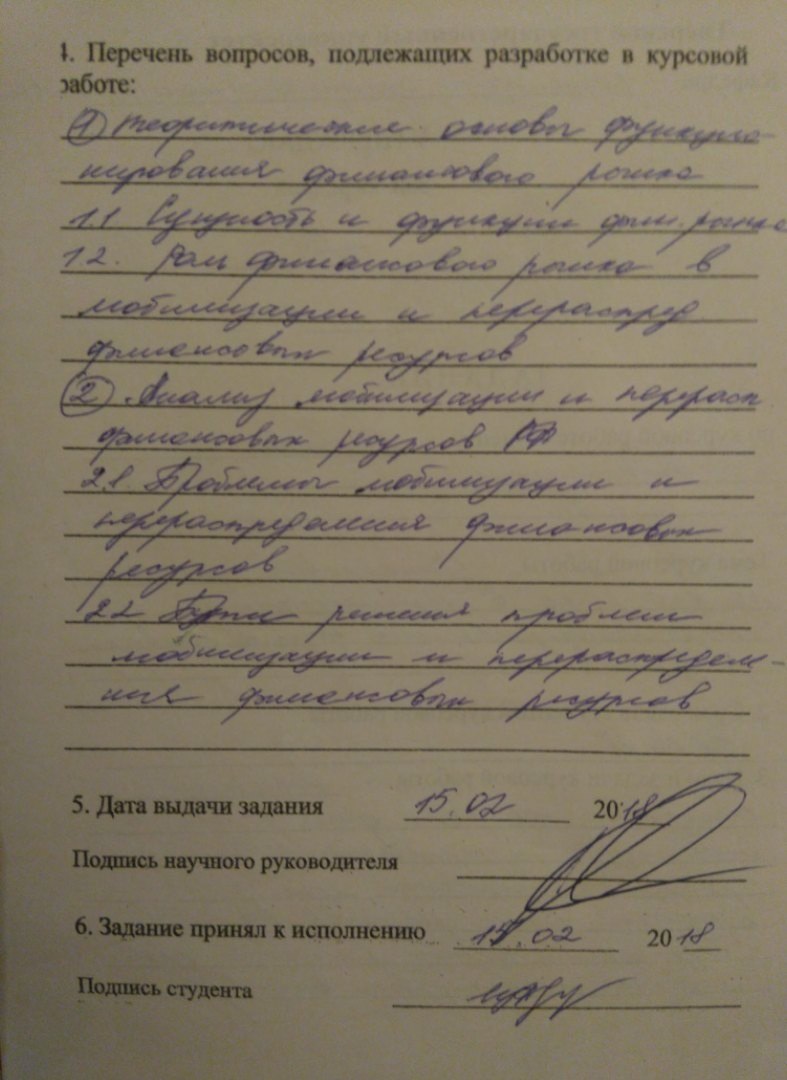 4. Перечень вопросов, подлежащих разработке в курсовой
работе:
1 Теоритические основы функцио-
нирования финансового рынка
1.1 Сущность и функции фин. рынка
1.2. Роль финансового рынка в
мобилизации и перераспред
финансовых ресурсов
2. Анализ мобилизации и перерасп
финансовых ресурсов РФ
2.1. Проблемы мобилизации и
перераспределения финансовых
ресурсов
2.2 Пути решения проблем
мобилизации и перераспределе-
ния финансовых ресурсов
5. Дата выдачи задания 15.02 2018
Подпись научного руководителя
6. Задание принял к исполнению 15.02 2018
Подпись студента